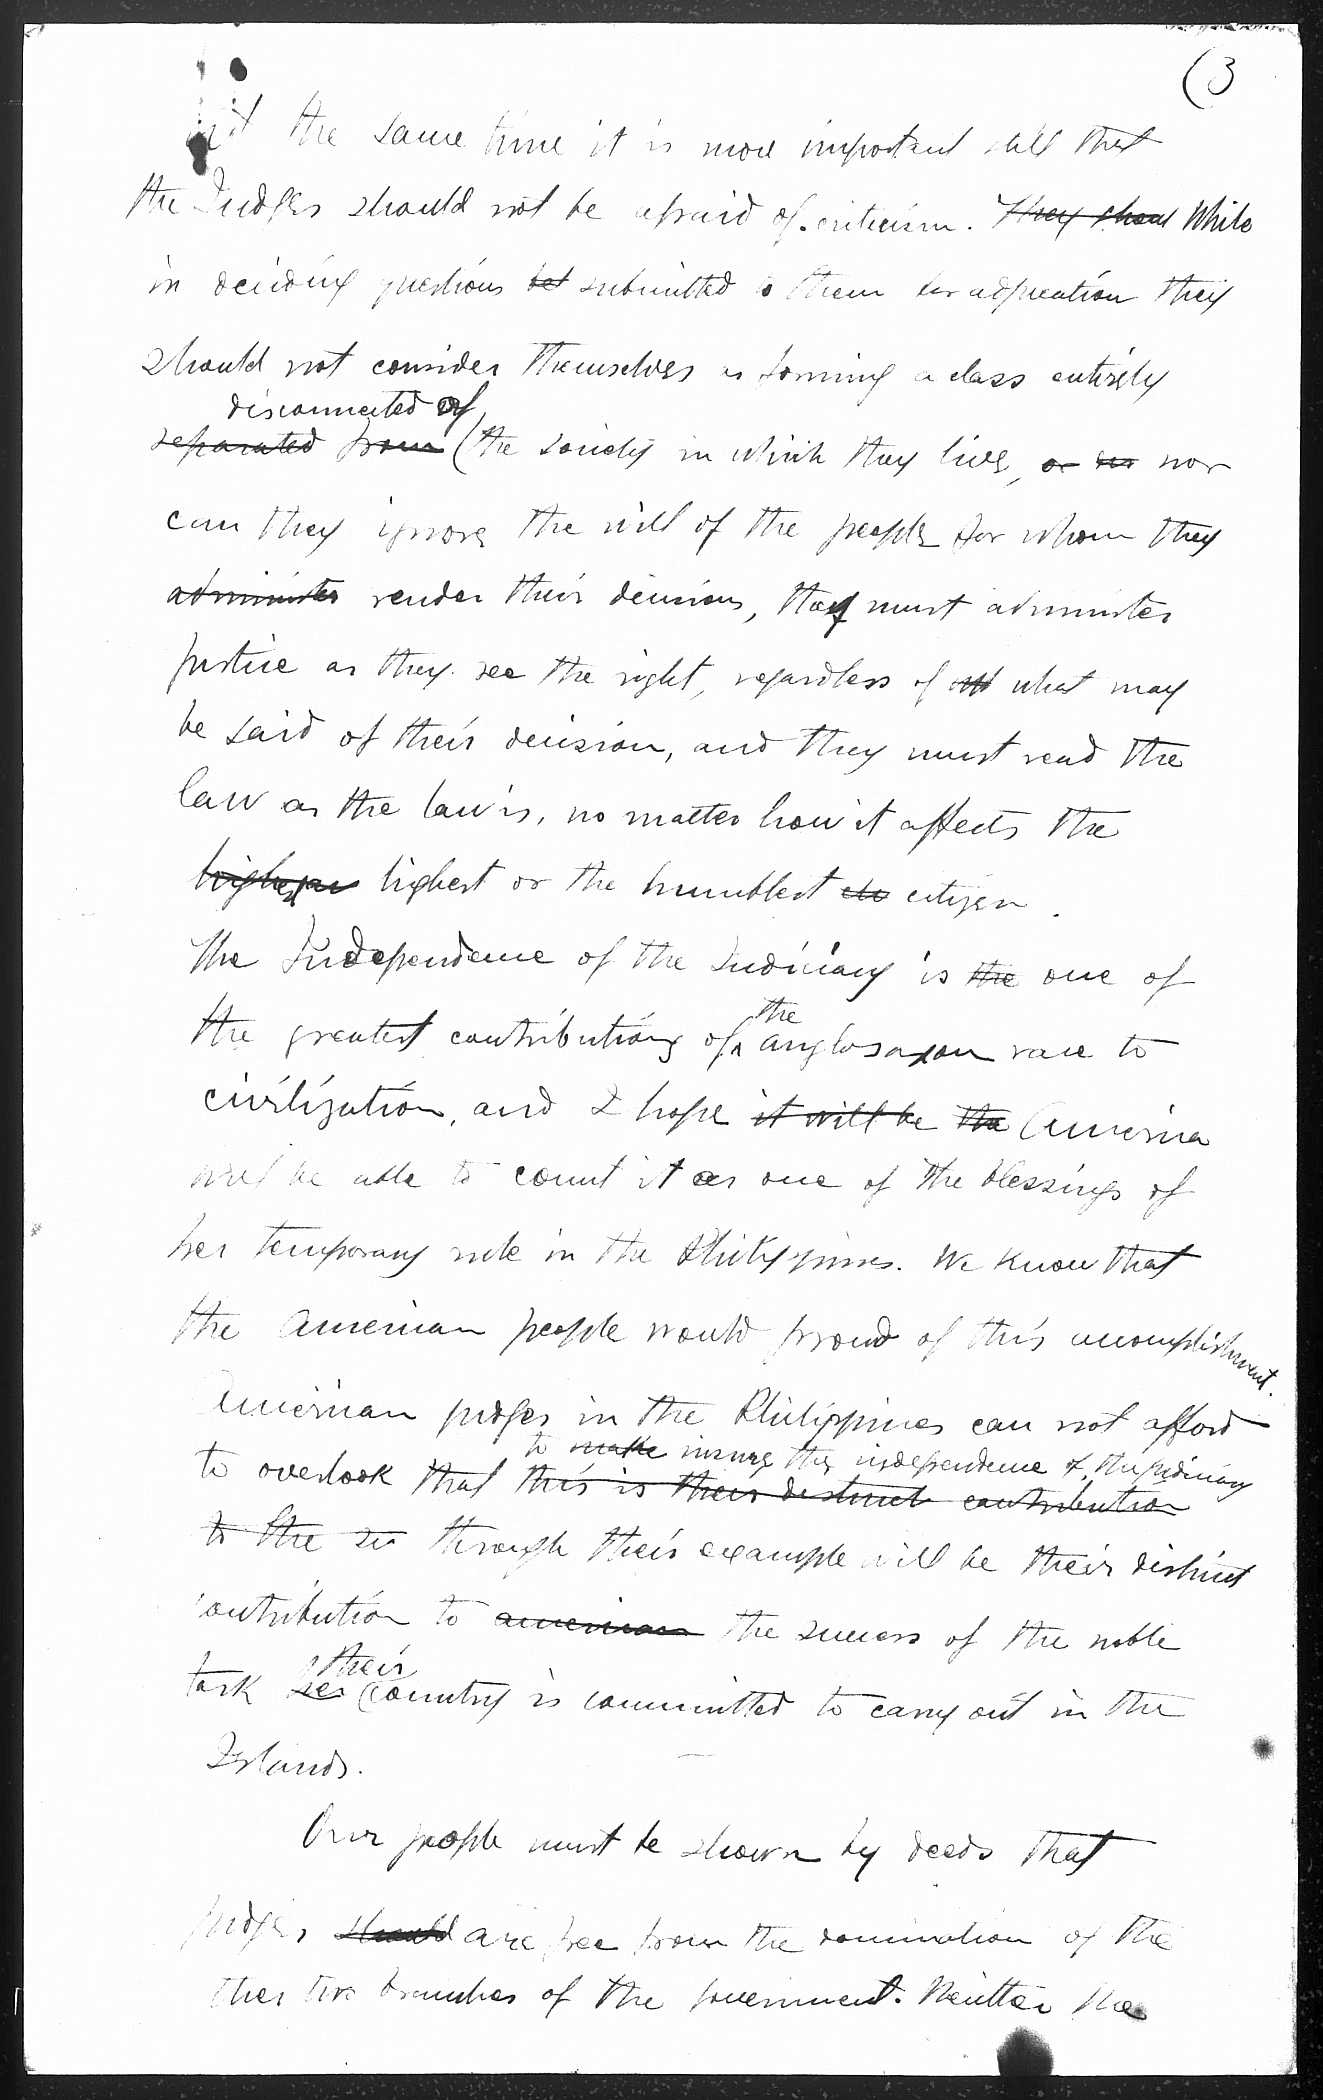 (3
At the same time it is more important still that
the Judges should not be afraid of criticism. They shoul While
in deciding questions bef submitted to them for adjucation they
should not consider themselves as forming a class entirely
disconnected of
separated from (the society in which they live, or no nor
can they ignore the will of the people for whom they
administer render their decisions, they must administer
justice as they see the right, regardless of all what may
be said of their decision, and they must read the
law as the law is, no matter how it affects the
highest or the humblest citizen.
The Independence of the Judiciary is the one of
the
the greatest contributions of anglosaxon race to
civilization, and I hope it will be the America
will be able to count it as one of the blessings of
her temporary rule in the Philippines. We know that
the American people would proud of this accomplishment.
American judges in the Philippines can not afford
to make insure the independence of the judiciary
to overlook that this is their distinct contribution
to the su through their example will be their distinct
contribution to american the success of the noble
their
task her (country is committed to carry out in the
Islands.
Our people must be shown by deeds that
judges should are free from the domination of the
other two branches of the government. Neither the